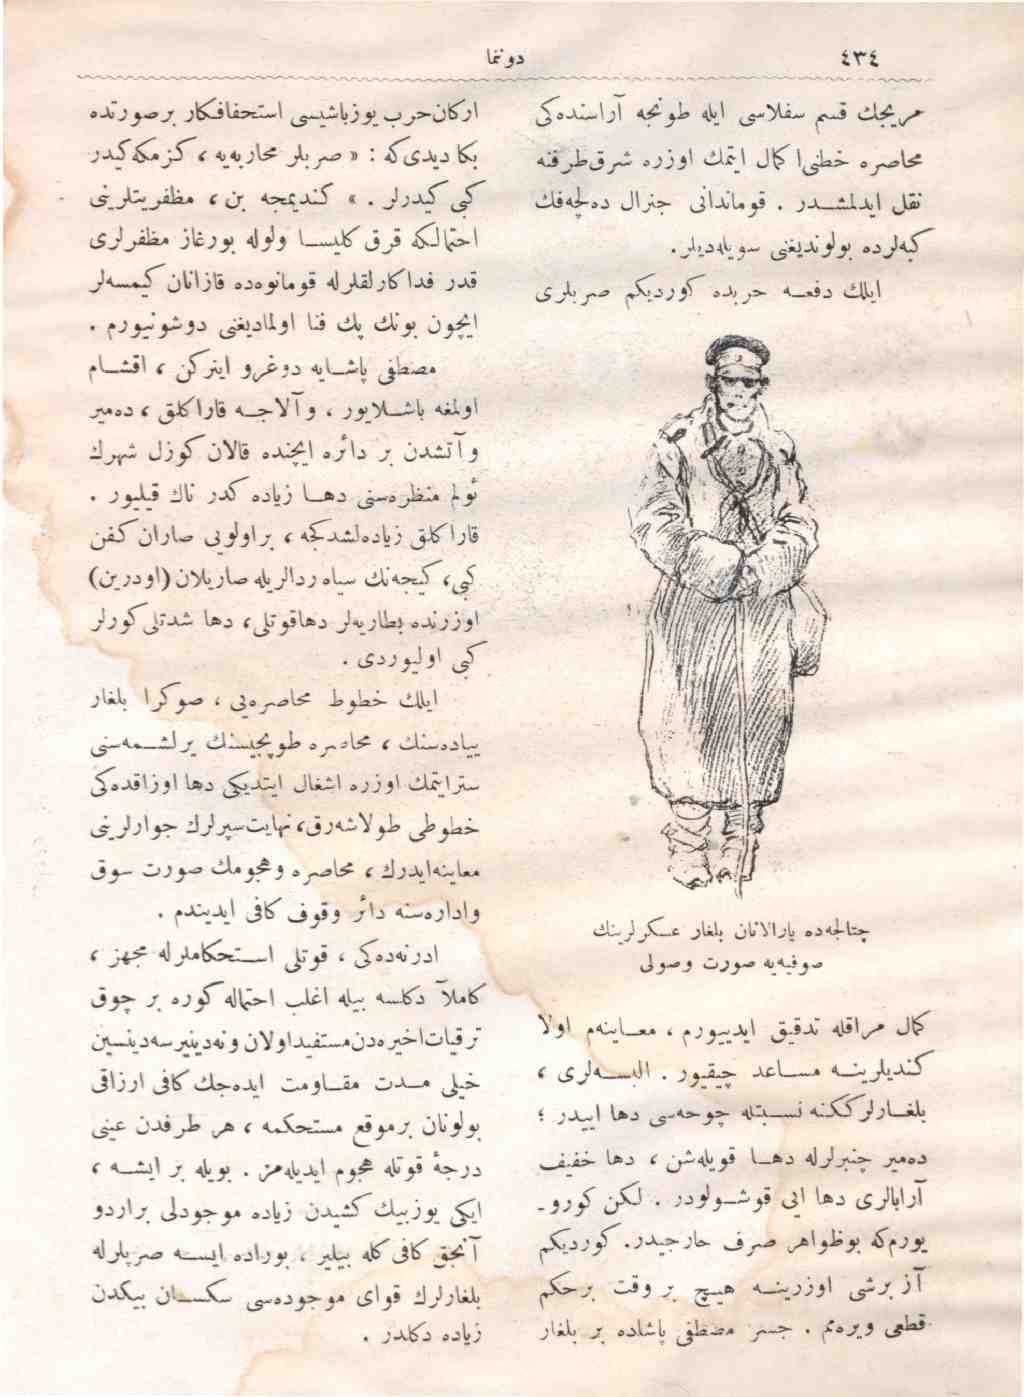 ٤٣٤
دوننما
مریجك قسم سفلاسی ایله طونجه آراسنده‌كی
محاصره خطنی ا كمال ایتمك اوزره شرق طرفنه
نقل ایدلمشـدر . قوماندانی جنرال ده‌لجه‌فك
كبه‌لرده بولوندیغنی سویله‌دیلر.
ایلك دفعـه حربده كوردیكم صربلری
چتالجه‌ده یارالانان بلغار عسكرلرینك
صوفیه‌یه صورت وصولی
كمال مراقله تدقیق ایدییورم ، معـاینه‌م اولا
كندیلرینـه مسـاعد چیقیور . البسـه‌لری ،
بلغـارلرككنه نسـبتله چوحه‌سی دها اییدر ؛
ده‌میر چنبرلرله دهـا قویله‌شن ، دها خفیف
آرابالری دها ایی قوشـولودر . لكن كورو-
یورم‌كه بوظواهر صرف خارجیدر. كوردیكم
آز برشی اوزرینـه هیـچ بر وقت برحكم
قطعی ویره‌مم . جسر مصطفی پاشاده بر بلغار
اركان‌حرب یوزباشیسی استخفافـكار برصورتده
بكا دیدی‌كه : « صربلر محاربه‌یه ، كزمكه‌كیدر
كبی كیدرلر . » كندیمجه بن ، مظفریتلرینی
احتمالـكه قرق كلیسـا ولوله بورغاز مظفرلری
قدر فداكارلقلرله قومانوه‌ده قازانان كیمسه‌لر
ایچون بونك پك فنا اولمادیغنی دوشونیورم .
مصطفی پاشـایه دوغرو اینركن ، اقشـام
اولمغه باشـلایور ، و آلاجـه قاراكلق ، ده‌میر
و آتشدن بر دائره ایچنده قالان كوزل شهرك
ئولم منظره‌سنی دهـا زیاده كدر ناك قیلیور .
قاراكلق زیاده‌لشدكجه ، براولویی صاران كفن
كبی ، كیجه‌نك سیاه ردالریله صاریلان (اودرین)
اوزرنده بطاریه‌لر دهاقوتلی ، دها شدتلی كورلر
كبی اولیوردی .
ایلك خطوط محاصره‌یی ، صوكرا بلغار
پیاده‌سنك ، محاصره طوپجیسنك یرلشـمه‌سنی
ستر ایتمك اوزره اشغال ایتدیكی دها اوزاقده‌كی
خطوطی طولاشه‌رق، نهایت‌سپرلرك جوارلرینی
معاینه‌ایدرك ، محاصره وهجومك صورت سوق
واداره‌سنه دائر وقوف كافی ایدیندم .
ادرنه‌ده‌كی ، قوتلی اسـتحكاملرله مجهز ،
كاملاً دكلسه بیله اغلب احتماله كوره بر چوق
ترقیات‌اخیره‌دن‌مستفیداولان ونه‌دینیرسه‌دینسین
خیلی مـدت مقـاومت ایده‌جك كافی ارزاقی
بولونان برموقع مستحكمه ، هر طرفدن عینی
درجهٔ قوتله هجوم ایدیله‌مز . بویله بر ایشـه ،
ایكی یوزبیك كشیدن زیاده موجودلی براردو
آنجق كافی كله بیلیر ، بوراده ایسـه صربلرله
بلغارلرك قوای موجوده‌سی سكسـان بیكدن
زیاده دكلدر .